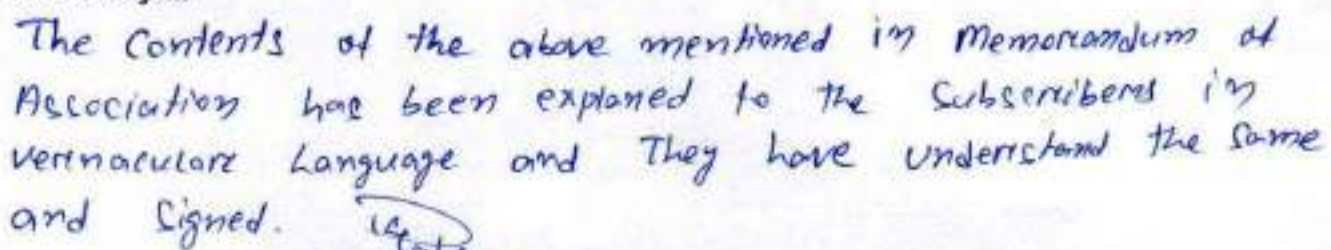 The Contents of the above mentioned in Memorandum of
Association has been explaned to the Subscribers in
vernacular Language and They have understand the same
and Signed.